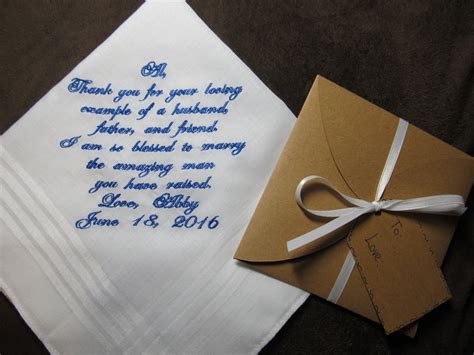 Al,
Thank you for your loving
example of a husband,
father, and friend.
I am so blessed to marry
the amazing man
you have raised.
Love, Abby
June 18, 2016
To:
Love,